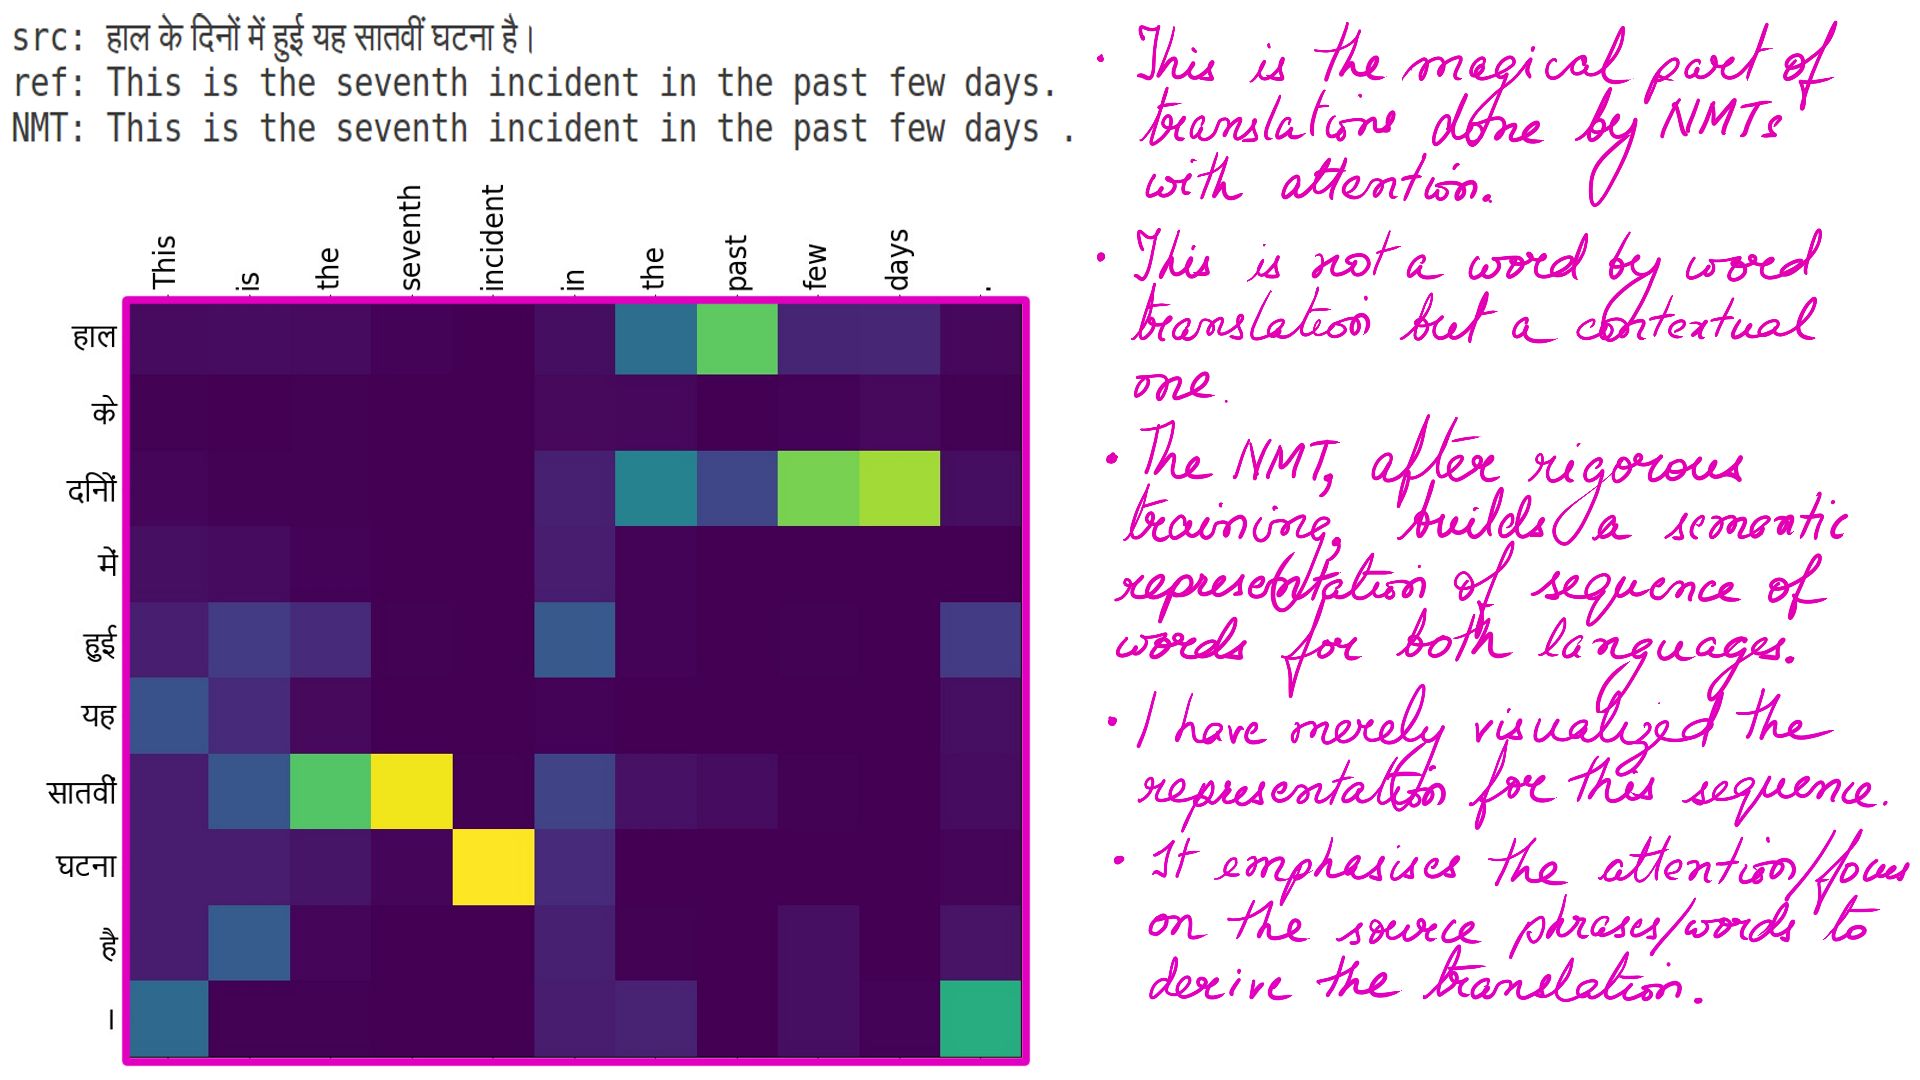 src: हाल के दिनों में हुई यह सातवीं घटना है।
ref: This is the seventh incident in the past few days.
NMT: This is the seventh incident in the past few days .
This is the seventh incident in the past few days .
हाल
के
दिनों
में
हुई
यह
सातवीं
घटना
है
।
• This is the magical part of
translations done by NMTs
with attention.
• This is not a word by word
translation but a contextual
one.
• The NMT, after rigorous
training, builds a semantic
representation of sequence of
words for both languages.
• I have merely visualized the
representation for this sequence.
• It emphasises the attention/focus
on the source phrases/words to
derive the translation.